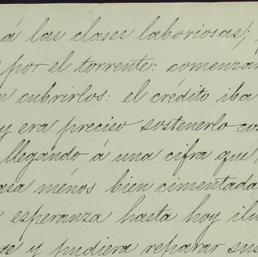 á las clases laboriosas;
por el torrente: comenzar
cubrirlos: el crédito iba
y era preciso sostenerlo
llegando á una cifra que
menos bien cimentada
esperanza hasta hoy
y pudiera reparar sus